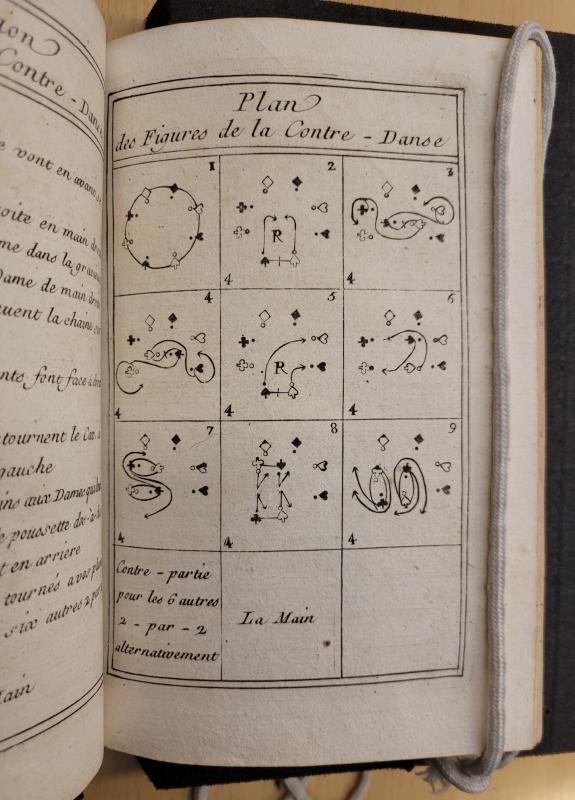 Contre - Danse
vont en avant
oite en main
me dans la
Dame de main
uent la chaine
nts font face a
tournent le Cav.
gauche
ins aux Dames
e poussette dos-à-
t en arrière
tournés avec
six autres 2 par
Main
Plan
des Figures de la Contre - Danse
1
2
3
R
4
4
4
5
6
R
4
4
4
7
8
9
4
4
4
Contre - partie
pour les 6 autres
2 - par - 2
alternativement
La Main